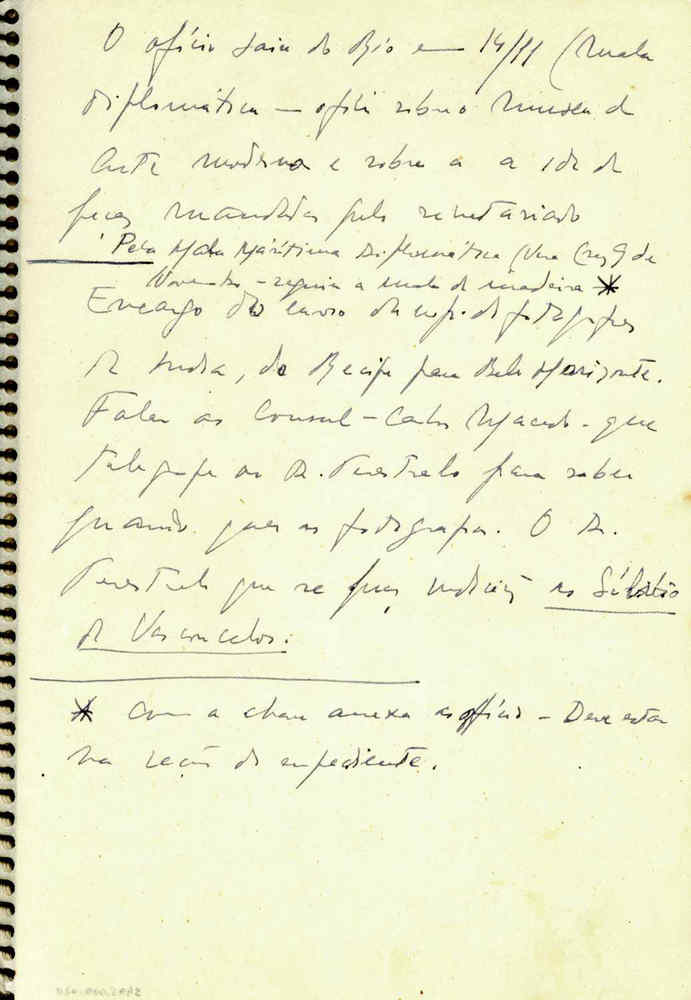 O ofício saiu do Rio em 14/11 (mala
diplomática — ofício sobre o Museu de
Arte Moderna e sobre a
peças mandadas pelo secretariado
Pela Mala Marítima Diplomática (Vera Cruz 9 de
Novembro - seguiu a mala de madeira *
Encargo do envio da exp. de fotografias
de, do Recife para Belo Horizonte.
Falar ao Consul - Carlos Macedo - que
telegrafe ao Dr. Perestrelo para saber
quando as fotografias. O Dr.
Perestrelo que se ao Sílvio
de Vasconcelos.
* Com a chave anexa ao ofício - Deve estar
na secção de expediente.